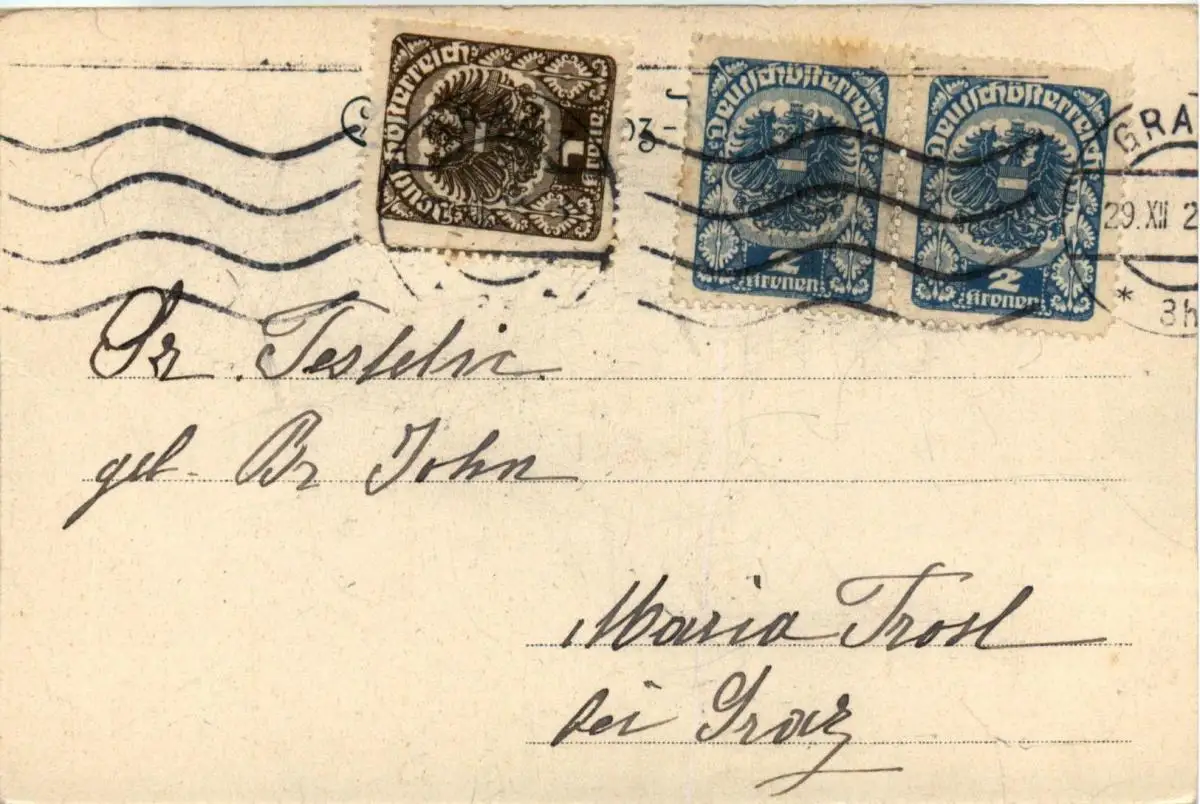 Deutschösterreich
1 Krone
Deutschösterreich
2
Kronen
Deutschösterreich
2
Kronen
GRA
29.XII 2
* 3h
geb. Br John
Maria Trost
bei Graz